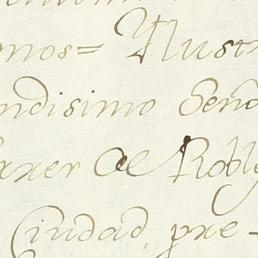 nos= Yllustr
ndisimo Seño
xer de Roble
Ciudad, pre-